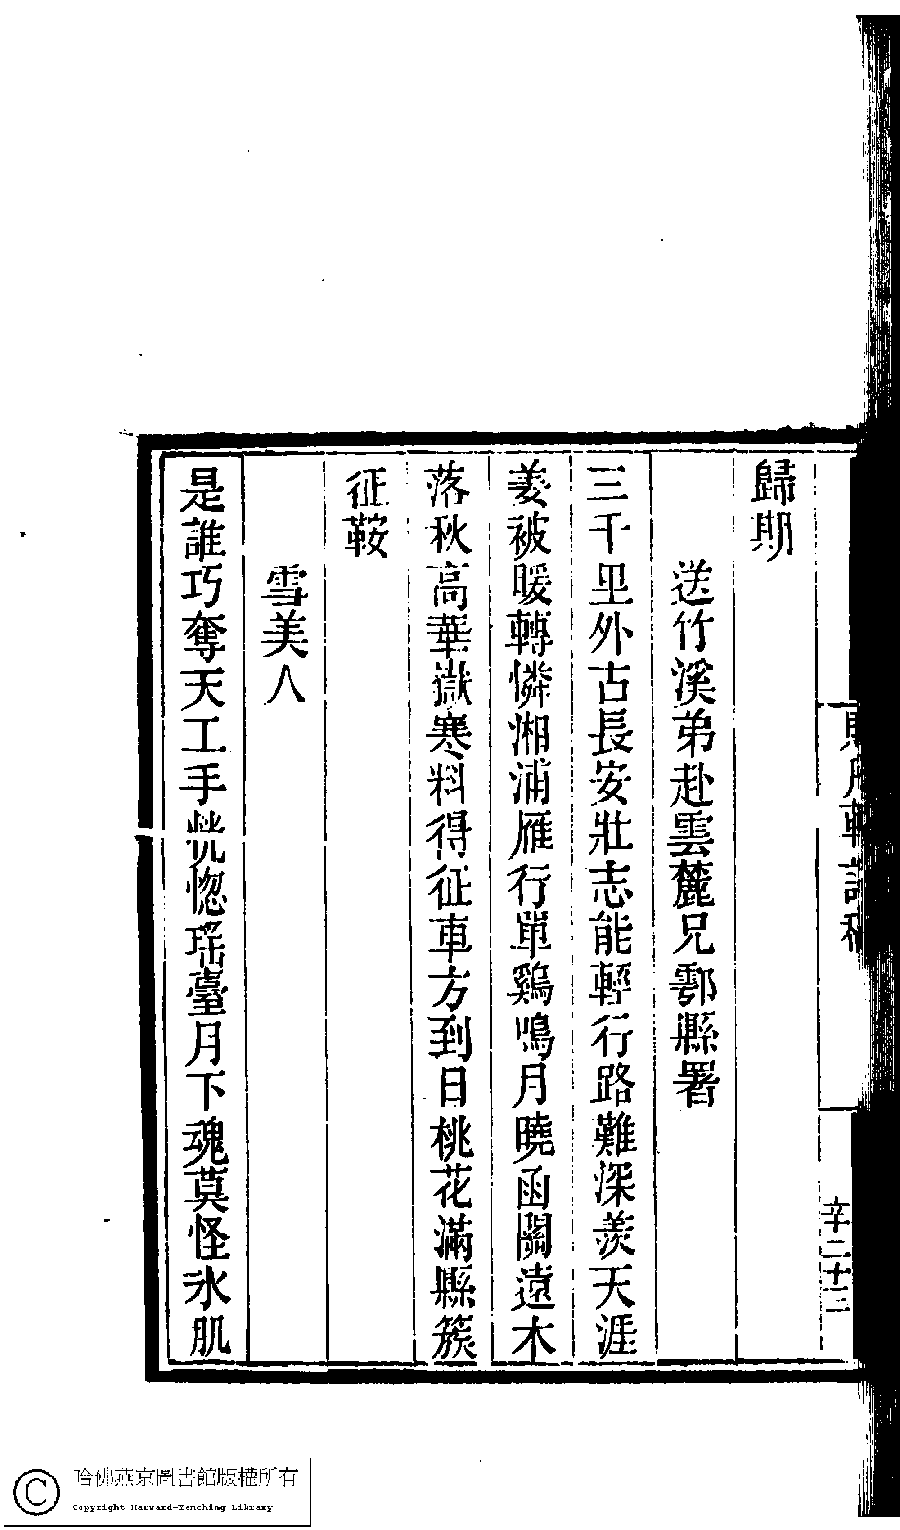 歸期
送竹溪弟赴雲麓兄鄠縣署
三千里外古長安壯志能輕行路難深羨天涯
姜被暖轉憐湘浦雁行單鷄鳴月曉函關遠木
落秋高華嶽寒料得征車方到日桃花滿縣簇
征鞍
雪美人
是誰巧奪天工手恍惚瑤臺月下魂莫怪氷肌
軒詩稿
辛二十三
哈佛燕京圖書館版權所有
Copyright Harvard-Yenching Library